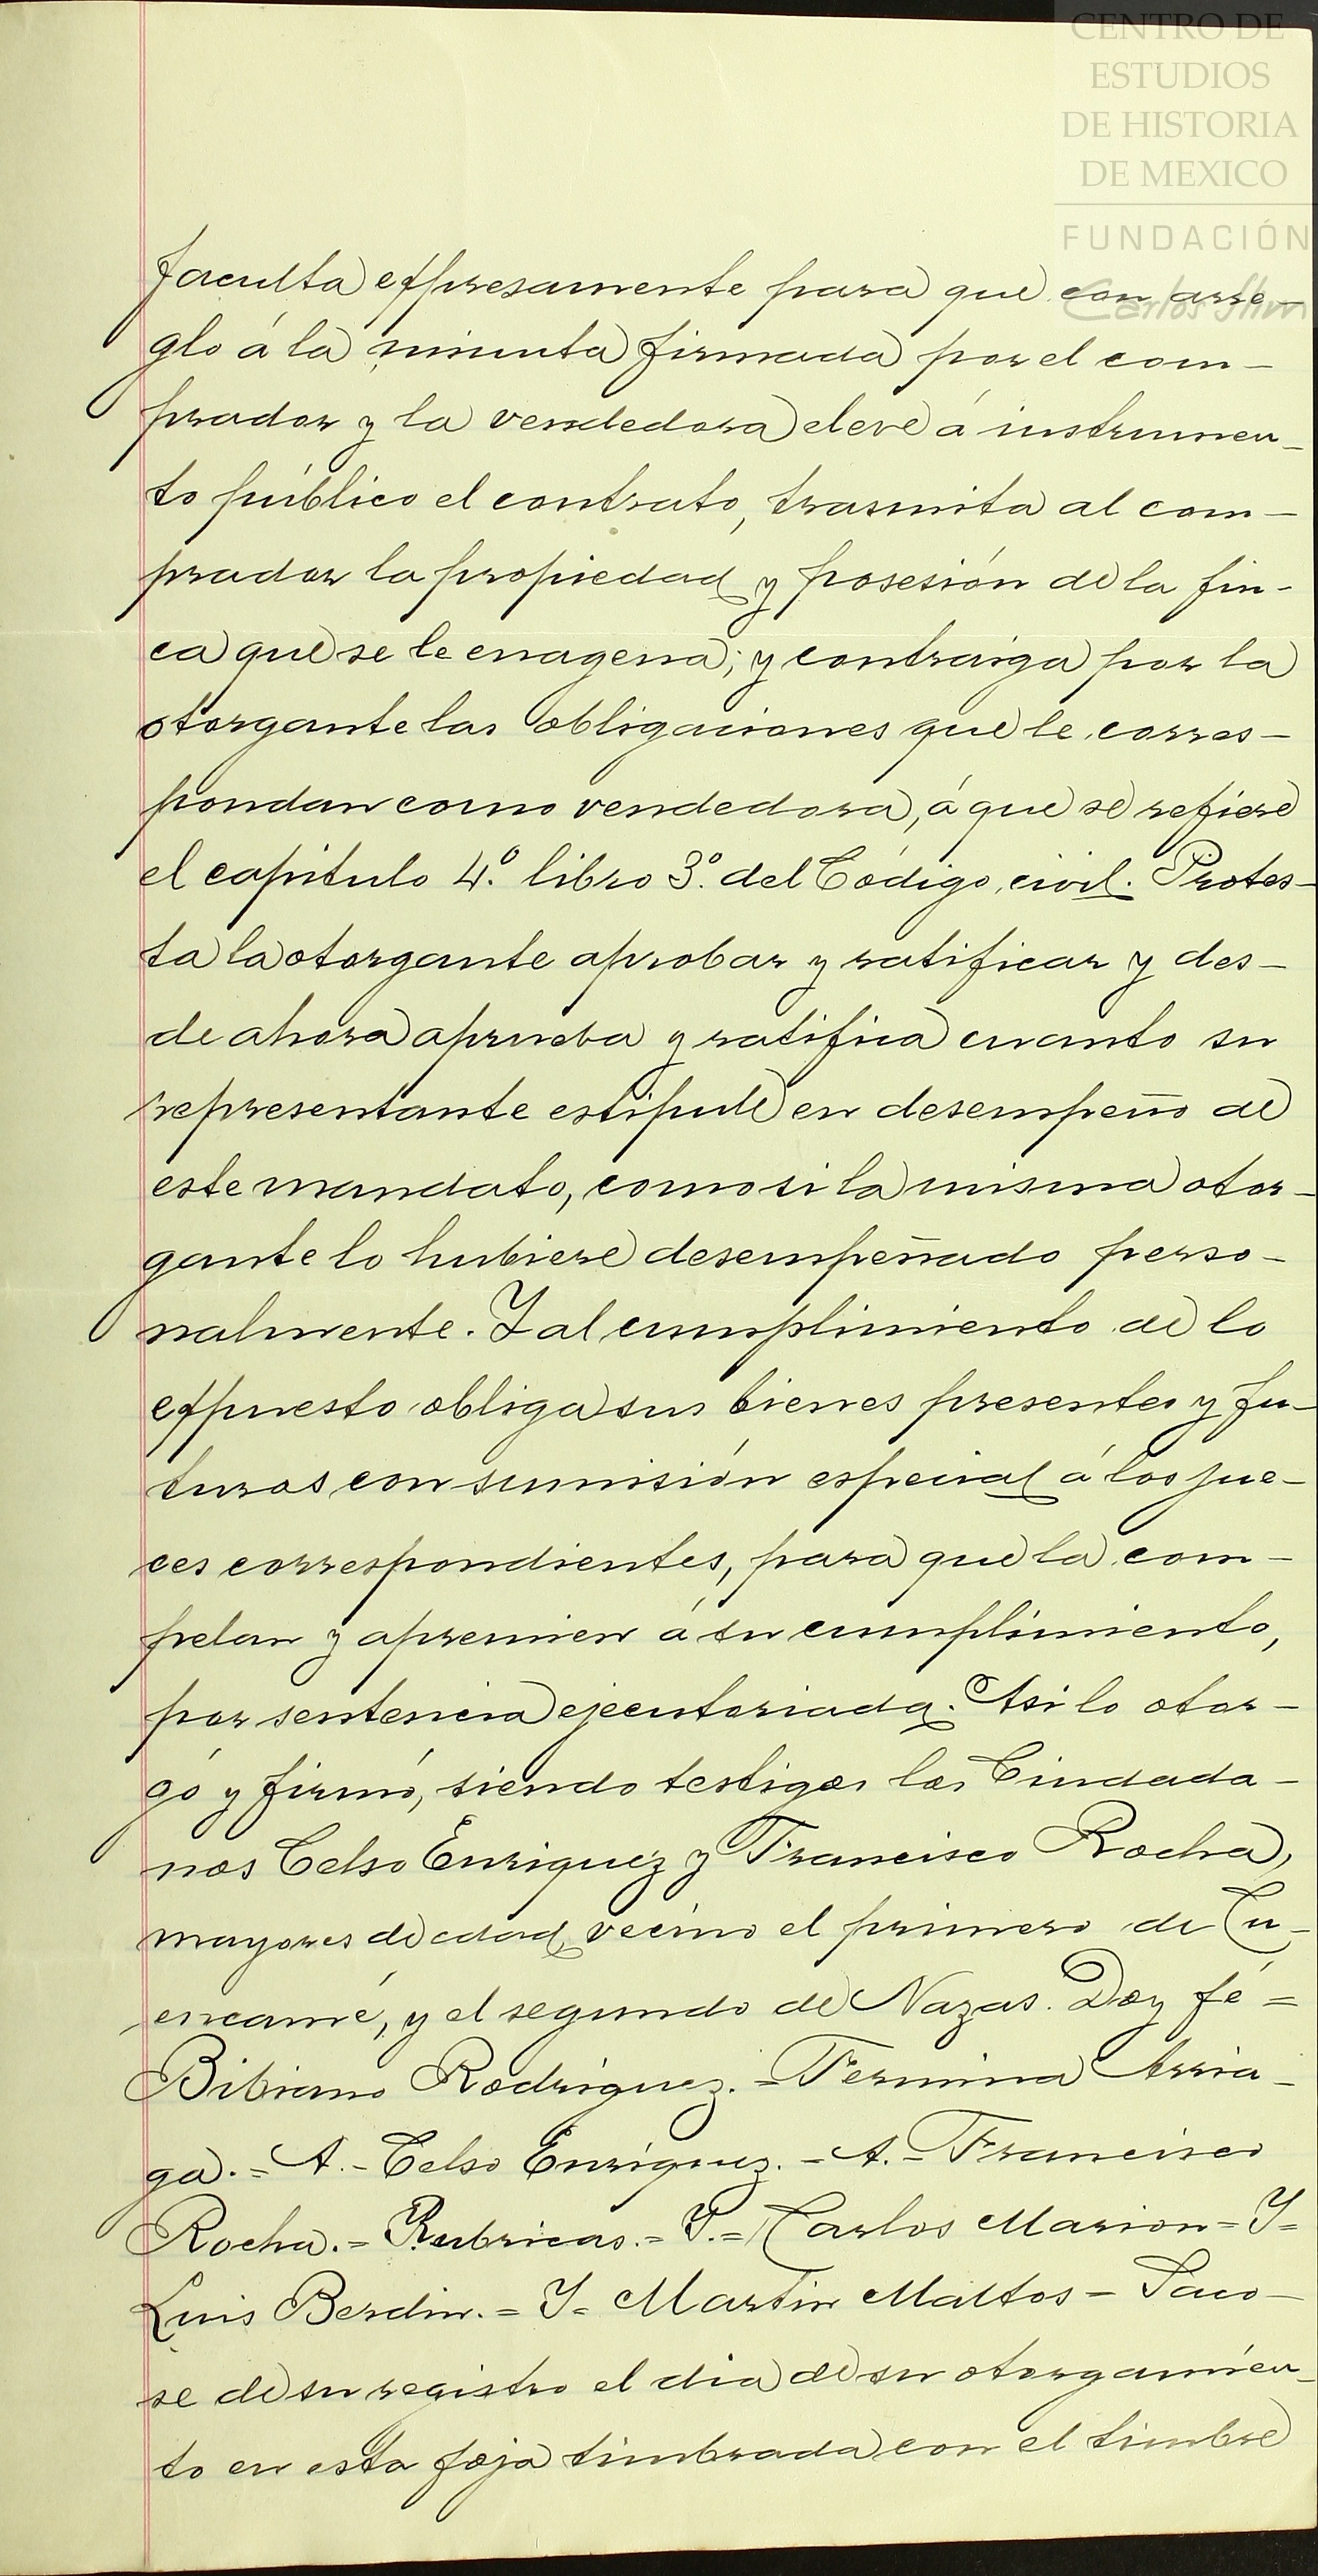 CENTRO DE
ESTUDIOS
DE HISTORIA
DE MEXICO
FUNDACIÓN
Carlos Slim
faculta expresamente para que con arre-
glo á la minuta firmada por el com-
prador y la vendedora eleve á instrumen-
to público el contrato, trasmita al com-
prador la propiedad y posesión de la fin-
ca que se le enagena; y contraiga por la
otorgante las obligaciones que le corres-
pondan como vendedora, á que se refiere
el capitulo 4.º libro 3.º del Código civil. Protes-
ta la otorgante aprobar y ratificar y des-
de ahora aprueba y ratifica cuanto su
representante estipule en desempeño de
este mandato, como si la misma otor-
gante lo hubiere desempeñado perso-
nalmente. Y al cumplimiento de lo
expuesto obliga sus bienes presentes y fu-
turos con sumisión especial á los jue-
ces correspondientes, para que la com-
pelan y apremien á su cumplimiento,
por sentencia ejecutoriada. Asi lo otor-
gó y firmó, siendo testigos los Ciudada-
nos Celso Enriquez y Francisco Rocha,
mayores de edad, vecino el primero de Cu-
encamé, y el segundo de Nazas. Doy fé =
Bibiano Rodriguez. = Fermina Arria-
ga. = A. - Celso Enríquez. - A. = Francisco
Rocha. = Rubricas. = T. = Carlos Marion = T=
Luis Berdin. = T= Martin Maltos = Saco-
se de su registro el dia de su otorgamien-
to en esta foja timbrada con el timbre